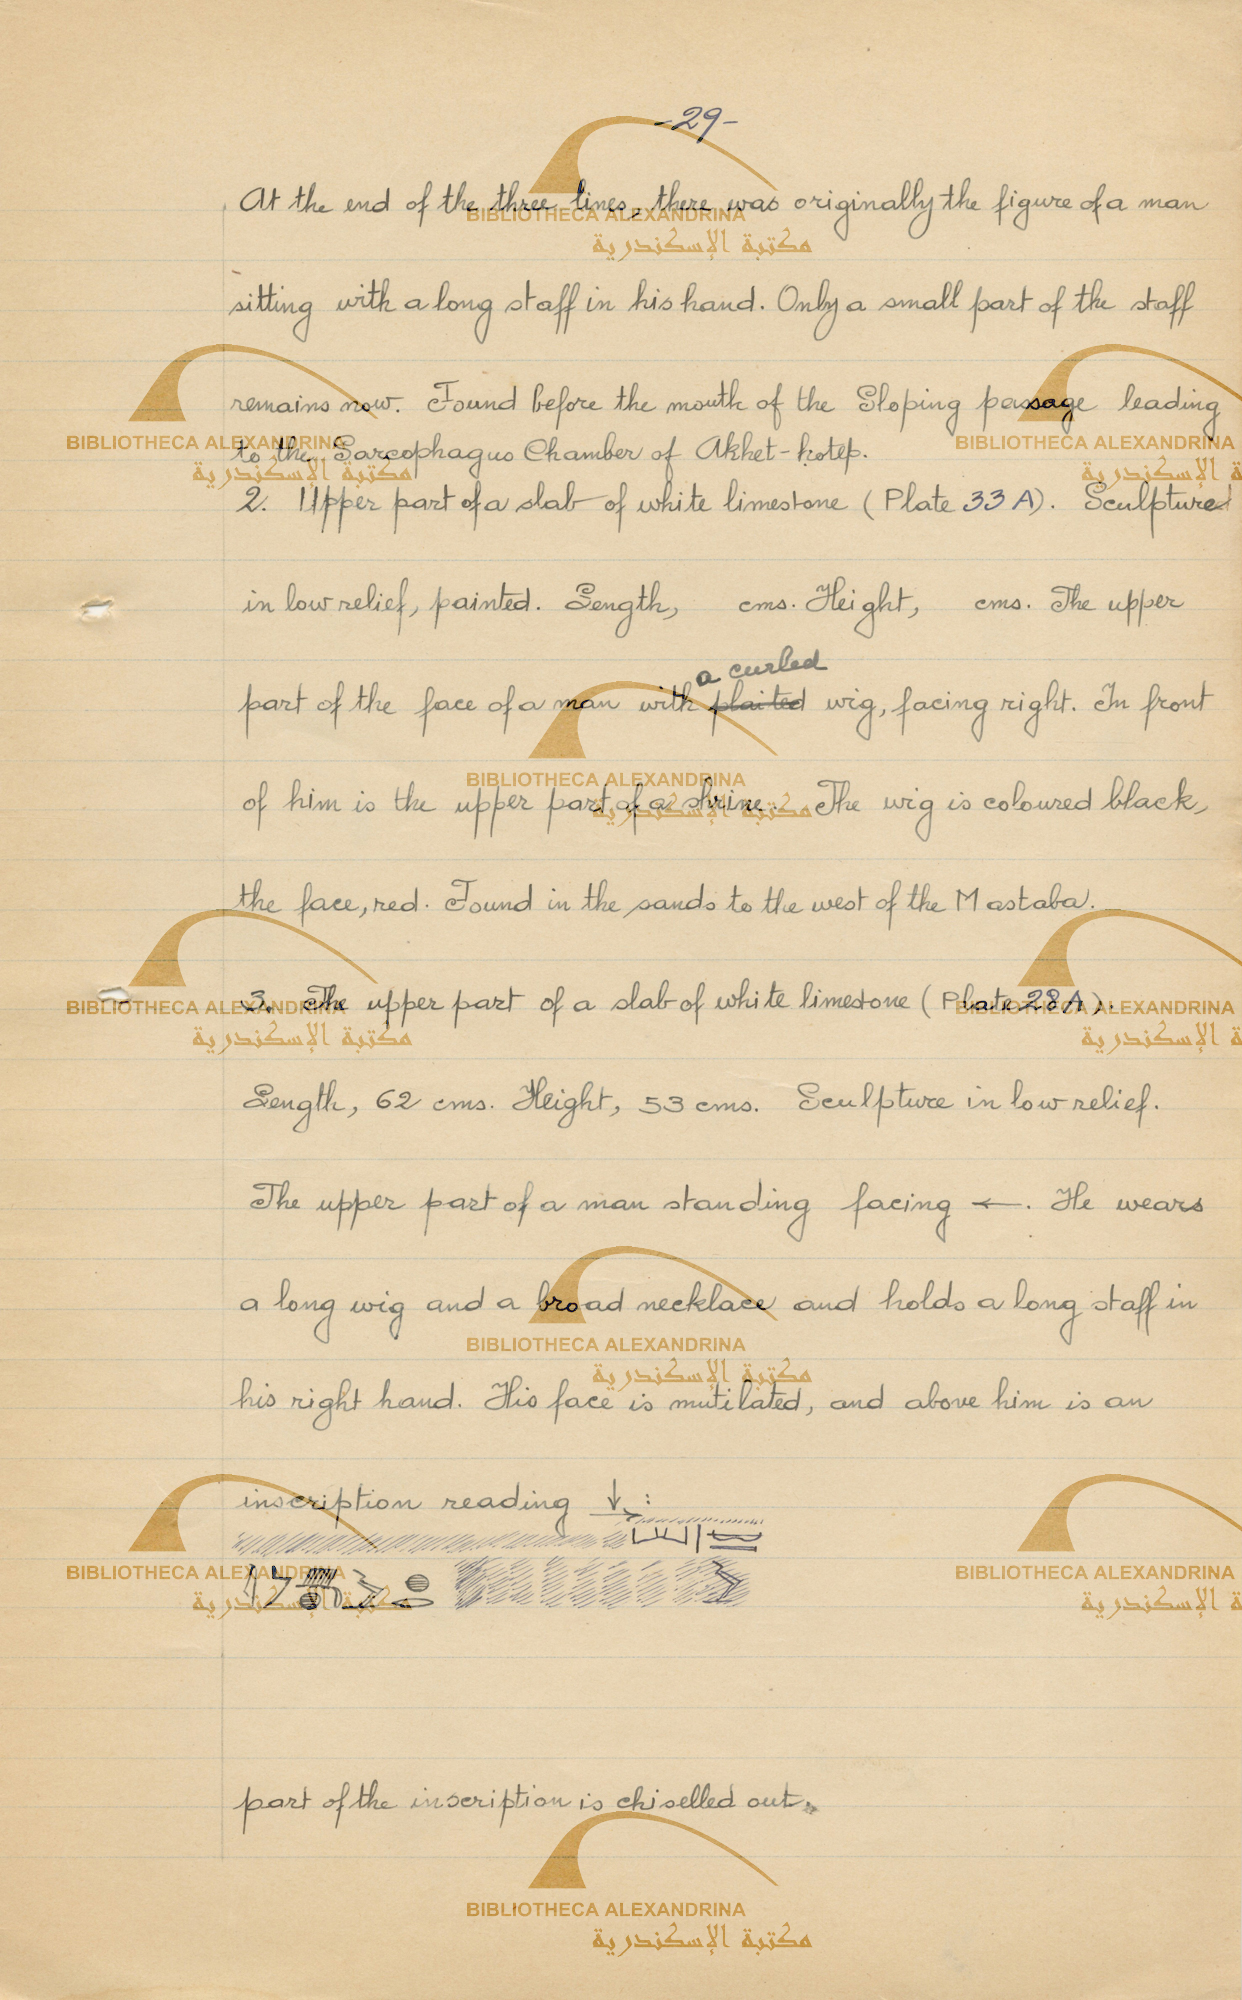 -29-
At the end of the three lines, there was originally the figure of a man
sitting with a long staff in his hand. Only a small part of the staff
remains now. Found before the mouth of the Sloping passage leading
to the Sarcophagus Chamber of Akhet-hotep.
2. Upper part of a slab of white limestone (Plate 33 A). Sculptured
in low relief, painted. Length, cms. Height, cms. The upper
a curled
part of the face of a man with plaited wig, facing right. In front
of him is the upper part of a shrine. The wig is coloured black,
the face, red. Found in the sands to the west of the Mastaba.
3. The upper part of a slab of white limestone (Plate 28 A).
Length, 62 cms. Height, 53 cms. Sculpture in low relief.
The upper part of a man standing facing ←. He wears
a long wig and a broad necklace and holds a long staff in
his right hand. His face is mutilated, and above him is an
inscription reading ↓→:
part of the inscription is chiselled out.
BIBLIOTHECA ALEXANDRINA
مكتبة الإسكندرية